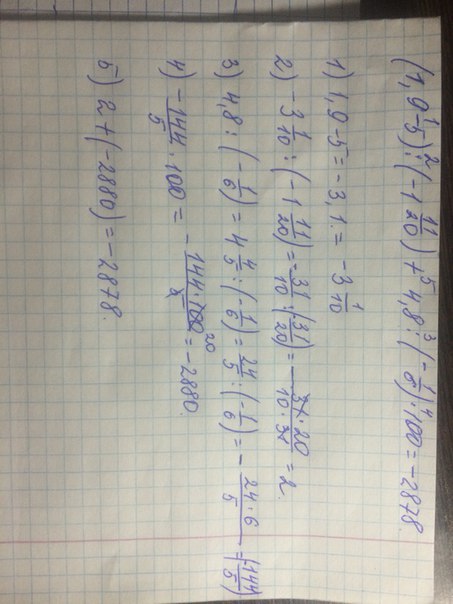 (1,9-5):(-1 11/20)+4,8:(-1/6)·100=-2878.
1) 1,9-5=-3,1.=-3 1/10
2) -3 1/10:(-1 11/20)=-31/10:(-31/20)=-31·20/10·31=2.
3) 4,8:(-1/6)=4 4/5:(-1/6)=24/5:(-1/6)=-24·6/5=(-144/5)
4) -144/5·100=-144·100/5=-2880.
5) 2+(-2880)=-2878.